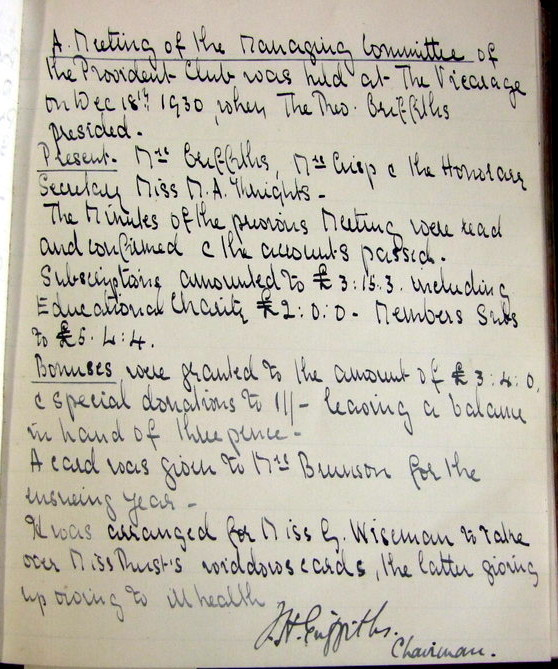 A Meeting of the Managing Committee of
the Provident Club was held at The Vicarage
on Dec 18th 1930, when The Theo. Griffiths
presided.
Present. Mrs Griffiths, Mrs Crisp & the Honorary
Secretary Miss M. A. Thwights.
The Minutes of the previous Meeting were read
and confirmed & the accounts passed.
Subscriptions amounted to £3:15.3. including
Educational Charity £2:0:0 - Members Subs
to £5.4:4.
Bonuses were granted to the amount of £3:4:0,
& special donations to 11/- leaving a balance
in hand of three pence -
A card was given to Mrs Brunson for the
ensueing year -
It was arranged for Miss G. Wiseman to take
over Miss Thust's widdows cards, the latter giving
up owing to ill health
J. H. Griffiths.
Chairman.